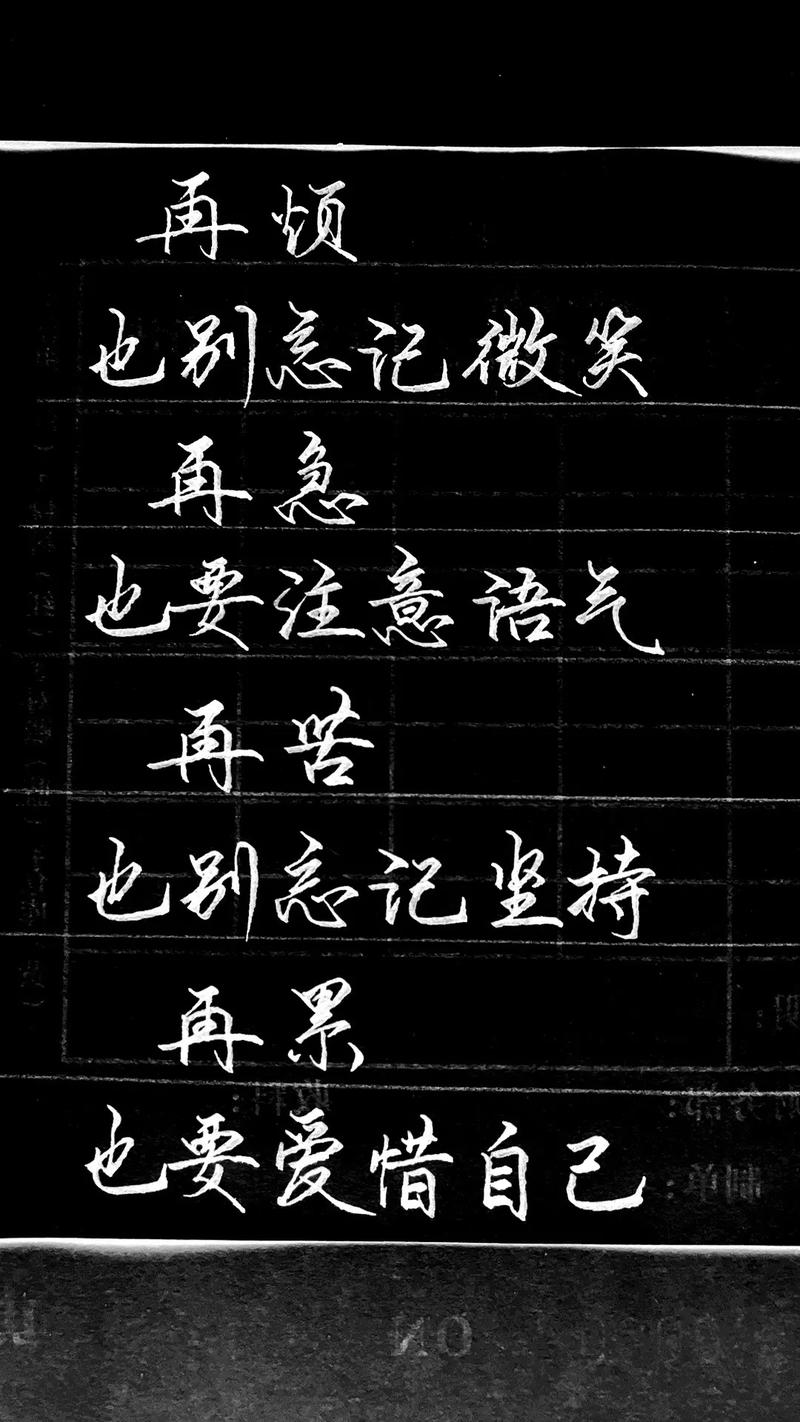 再烦
也别忘记微笑
再急
也要注意语气
再苦
也别忘记坚持
再累
也要爱惜自己
制单:
NO